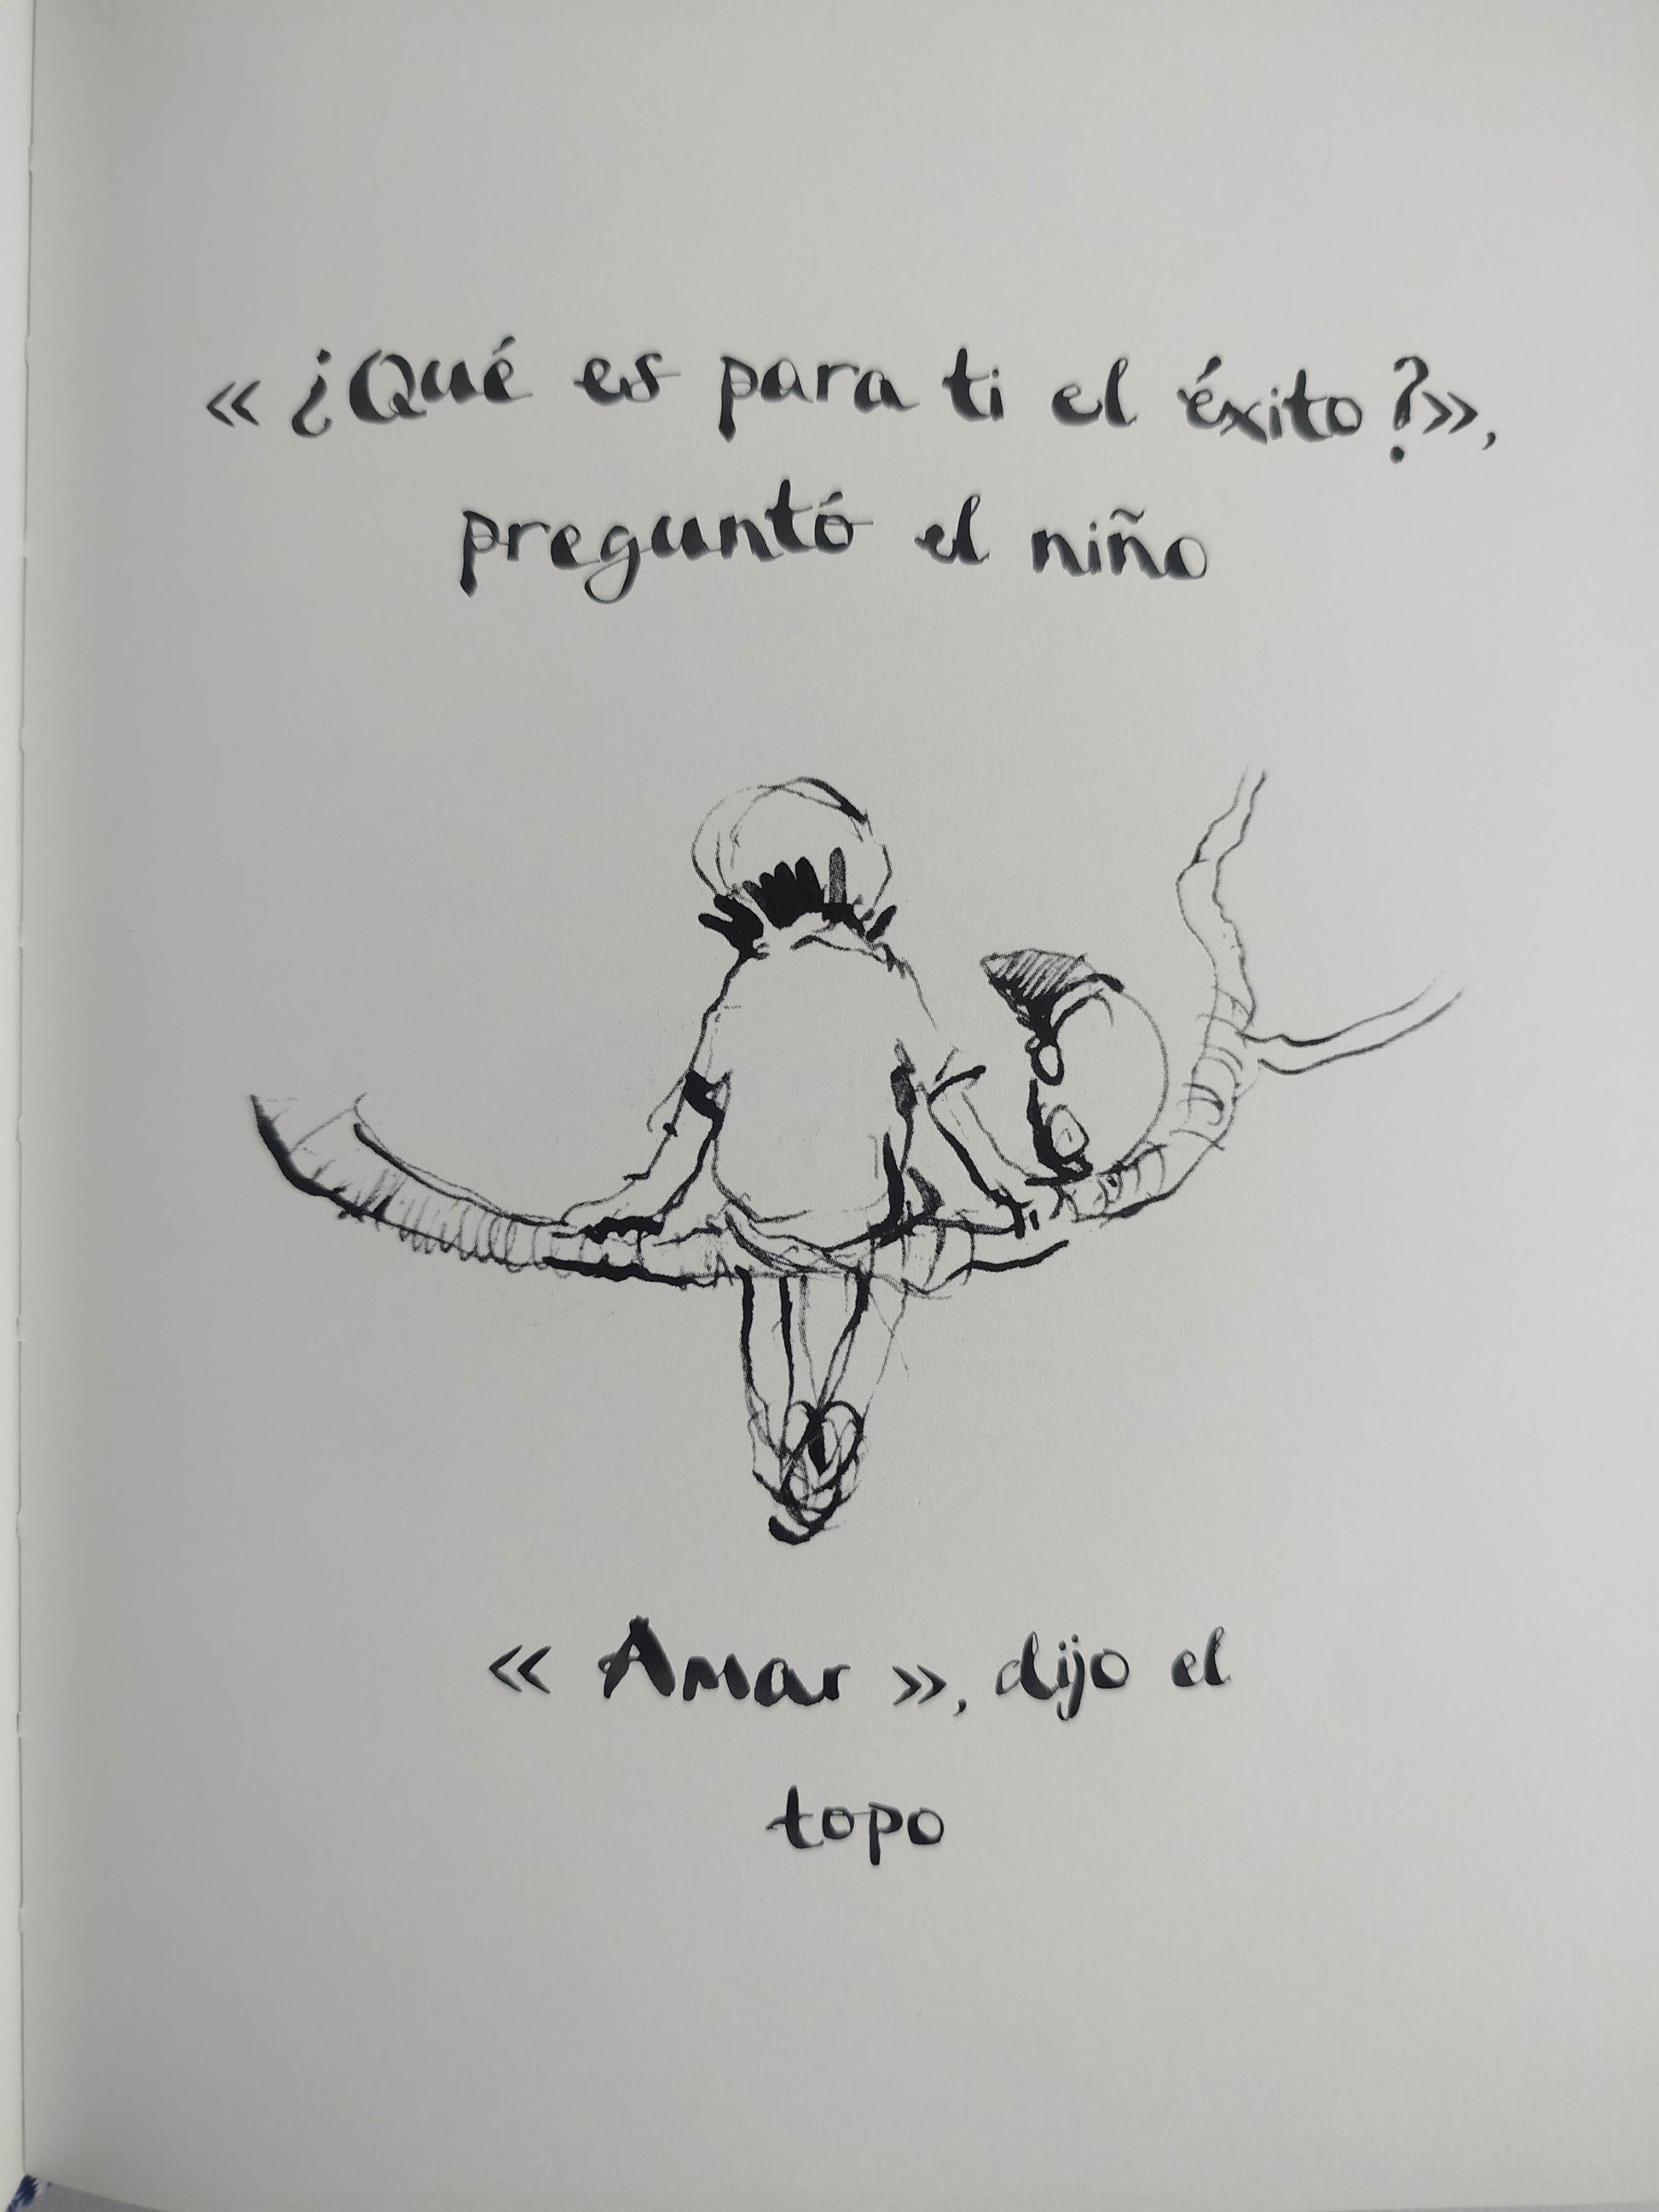 « ¿Qué es para ti el éxito?»,
preguntó el niño
« Amar », dijo el
topo